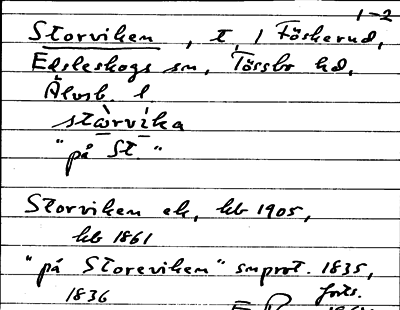 1-2
Storviken, t, / Föskerud,
Edsleskogs sn, Tössbo hd,
Älvsb. l.
stòrvíka
"på St."
Storviken ek, kb 1905,
kb 1861
"på Storeviken" snprot. 1835,
1836 forts.